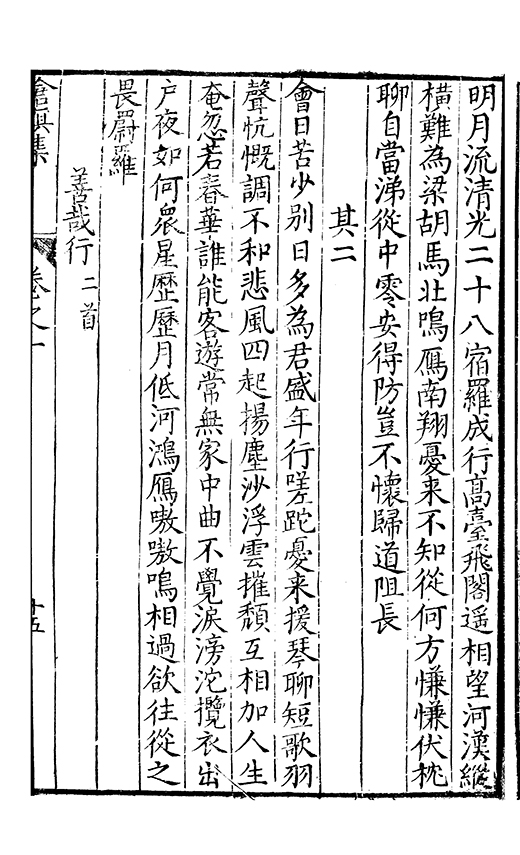 明月流清光二十八宿羅成行高臺飛閣遥相望河漢縱
横難為梁胡馬壮鳴鴈南翔憂来不知從何方慊慊伏枕
聊自當涕從中零安得防豈不懷歸道阻長
其二
會日苦少别日多為君盛年行嗟跎憂来援琴聊短歌羽
聲忼慨調不和悲風四起揚塵沙浮雲摧頽互相加人生
奄忽若春華誰能客遊常無家中曲不覺淚滂沱攬衣出
户夜如何衆星歴歴月低河鴻鴈嗷嗷鳴相過欲往從之
畏罻羅
善哉行二首
卷之一
十五